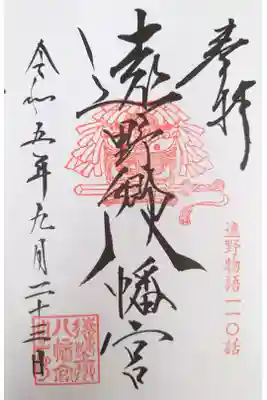 奉拝
遠野物語一一〇話
遠野郷八幡宮
令和五年九月二十三日
八幡宮